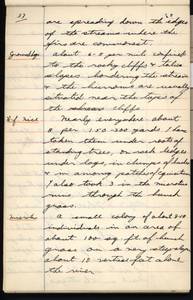 27
are spreading down the edges
of the streams where the
firs are commonest.
about 6-8 per mile confined
to the rocky cliffs & talus
slopes bordering the stream
& the burrows are usually
situated near the tapes of
the cliffs
Nearly everywhere about
8 per 150-200 yards I have
taken them under roots of
standing trees, or rock ledges
under logs, in clumps of bushes
& in among patches of
I also took 3 in the
through the bunch
grass.
A small colony of about 8-10
individuals in an area of
about 100 sq. ft. of bunch
grass on a very steep slope
about 10 vertical feet above
the river